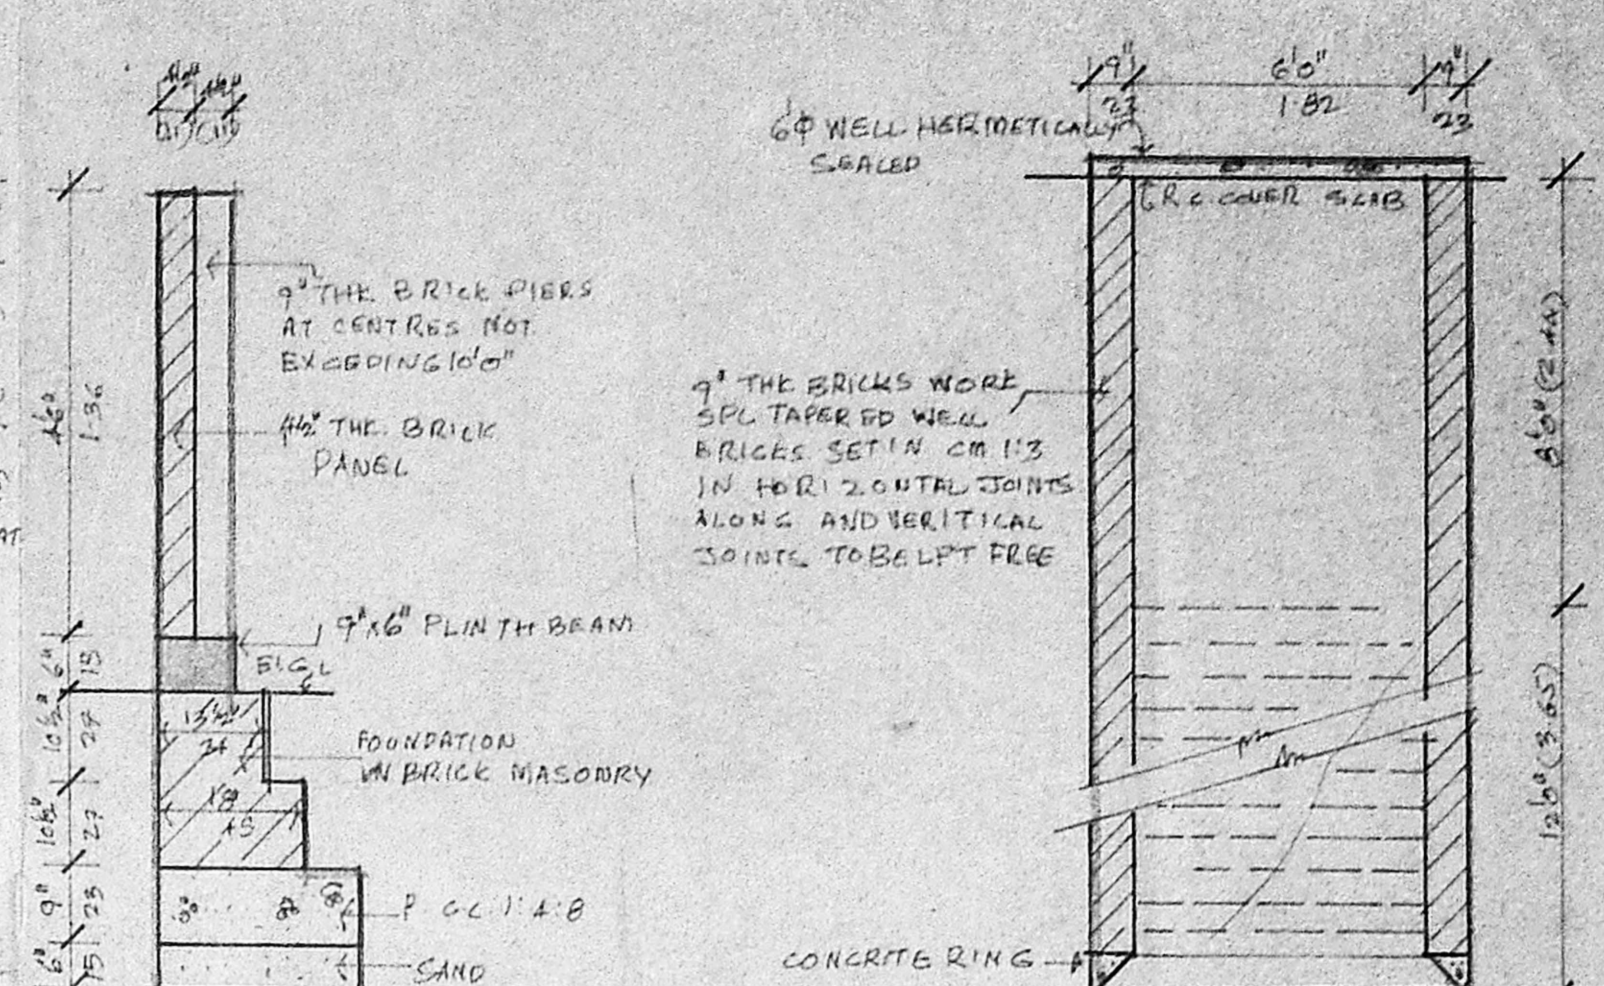 4½" 4½"
(11) (11)
4'6"
1·36
9" THK. BRICK PIERS
AT CENTRES NOT
EXCEDING 10'0"
4½" THK. BRICK
PANEL
9"x6" PLINTH BEAM
E.G.L
6"
15
10½"
27
13½"
FOUNDATION
IN BRICK MASONRY
10½"
27
18"
45
9"
23
P.C.C. 1:4:8
6"
15
SAND
9"
23
6'0"
1·82
9"
23
6'Φ WELL HERMETICALLY
SEALED
R.C. COVER SLAB
9" THK BRICKS WORK
SPL TAPERED WELL
BRICKS SET IN CM 1:3
IN HORIZONTAL JOINTS
ALONG AND VERITICAL
JOINTS TO BE LFT FREE
8'0" (2.44)
12'0" (3.65)
CONCRITE RING
AT